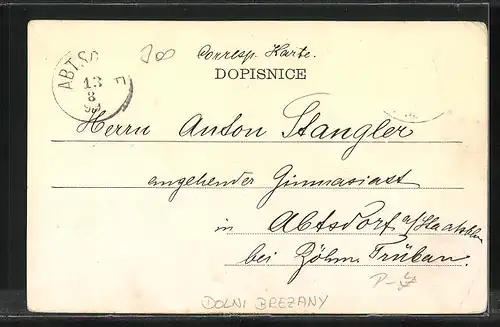 Corresp. Karte.
DOPISNICE
ABTSD F
13
8
99
Herrn Anton Stangler
angehender Gimnasiast
in Abtsdorf a/Staatsbhn
bei Böhm. Trübau.
DOLNI BREZANY